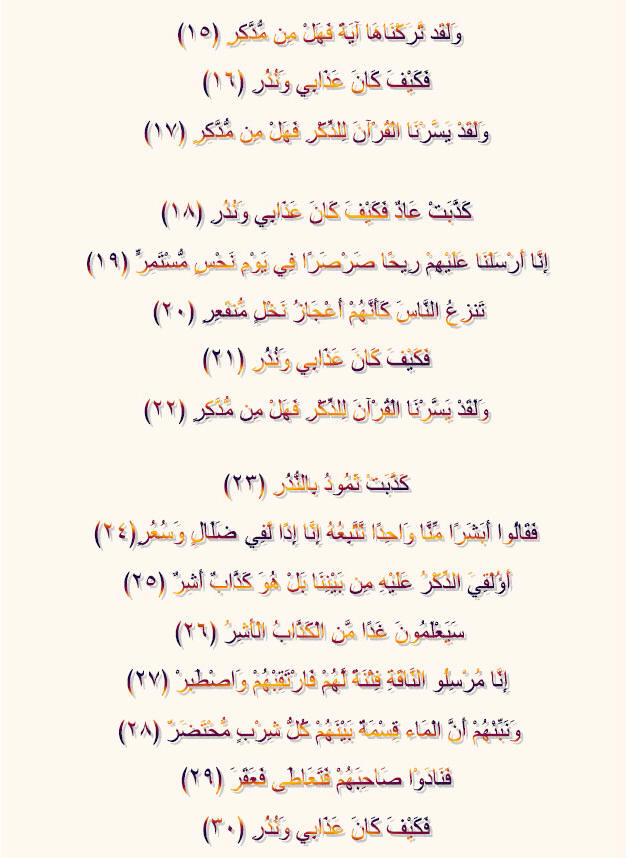 وَلَقَد تَّرَكْنَاهَا آيَةً فَهَلْ مِن مُّدَّكِرٍ (١٥)
فَكَيْفَ كَانَ عَذَابِي وَنُذُرِ (١٦)
وَلَقَدْ يَسَّرْنَا الْقُرْآنَ لِلذِّكْرِ فَهَلْ مِن مُّدَّكِرٍ (١٧)
كَذَّبَتْ عَادٌ فَكَيْفَ كَانَ عَذَابِي وَنُذُرِ (١٨)
إِنَّا أَرْسَلْنَا عَلَيْهِمْ رِيحًا صَرْصَرًا فِي يَوْمِ نَحْسٍ مُّسْتَمِرٍّ (١٩)
تَنزِعُ النَّاسَ كَأَنَّهُمْ أَعْجَازُ نَخْلٍ مُّنقَعِرٍ (٢٠)
فَكَيْفَ كَانَ عَذَابِي وَنُذُرِ (٢١)
وَلَقَدْ يَسَّرْنَا الْقُرْآنَ لِلذِّكْرِ فَهَلْ مِن مُّدَّكِرٍ (٢٢)
كَذَّبَتْ ثَمُودُ بِالنُّذُرِ (٢٣)
فَقَالُوا أَبَشَرًا مِّنَّا وَاحِدًا نَّتَّبِعُهُ إِنَّا إِذًا لَّفِي ضَلَالٍ وَسُعُرٍ(٢٤)
أَؤُلْقِيَ الذِّكْرُ عَلَيْهِ مِن بَيْنِنَا بَلْ هُوَ كَذَّابٌ أَشِرٌ (٢٥)
سَيَعْلَمُونَ غَدًا مَّنِ الْكَذَّابُ الْأَشِرُ (٢٦)
إِنَّا مُرْسِلُو النَّاقَةِ فِتْنَةً لَّهُمْ فَارْتَقِبْهُمْ وَاصْطَبِرْ (٢٧)
وَنَبِّئْهُمْ أَنَّ الْمَاء قِسْمَةٌ بَيْنَهُمْ كُلُّ شِرْبٍ مُّحْتَضَرٌ (٢٨)
فَنَادَوْا صَاحِبَهُمْ فَتَعَاطَى فَعَقَرَ (٢٩)
فَكَيْفَ كَانَ عَذَابِي وَنُذُرِ (٣٠)